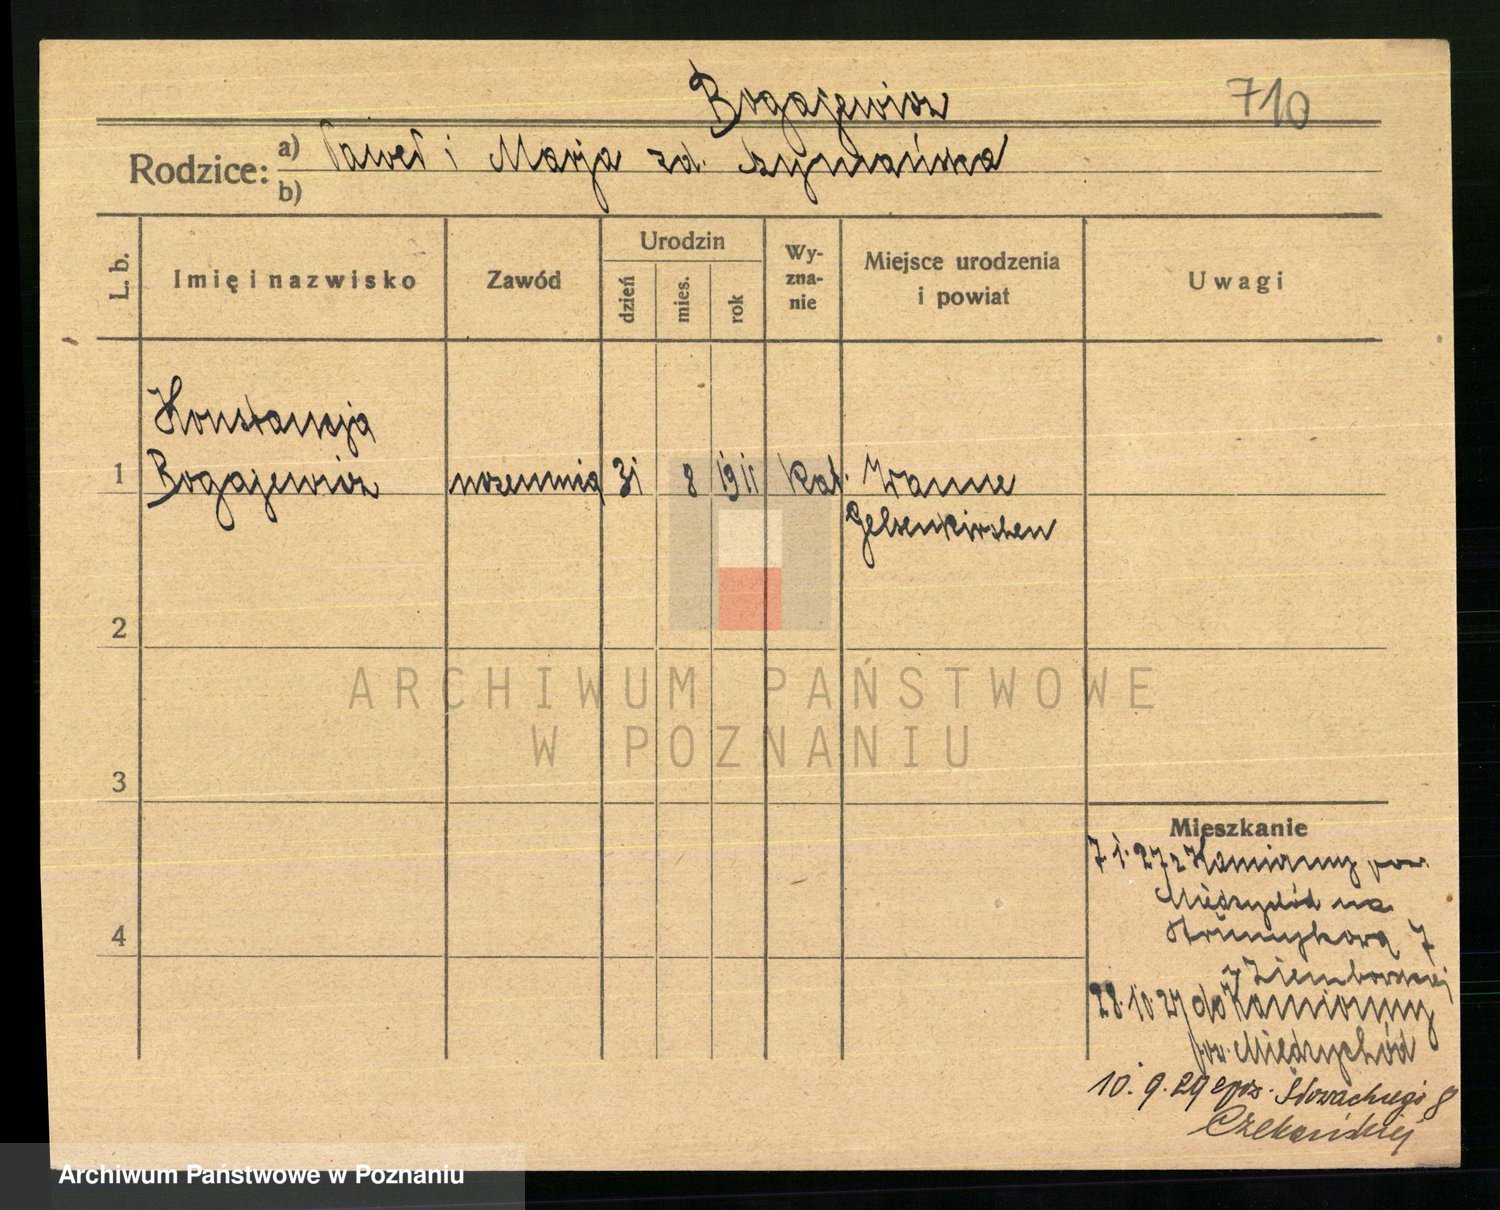 Bogajewicz
710
Rodzice: a) Paweł i Marja zd. Szymańska
b)
L. b.
Imię i nazwisko
Zawód
Urodzin
dzień
mies.
rok
Wy-
zna-
nie
Miejsce urodzenia
i powiat
Uwagi
Konstancja
1 Bogajewicz uczennica 31 8 1911 kat. Wanne
Gelsenkirchen
2
3
4
Mieszkanie
7.1.27 z Kamionny pow.
Międzychód na
Strumykową 7
28.10.27 do Kamionny
pow. Międzychód
10.9.29 Słowackiego 8
ARCHIWUM PAŃSTWOWE
W POZNANIU
Archiwum Państwowe w Poznaniu